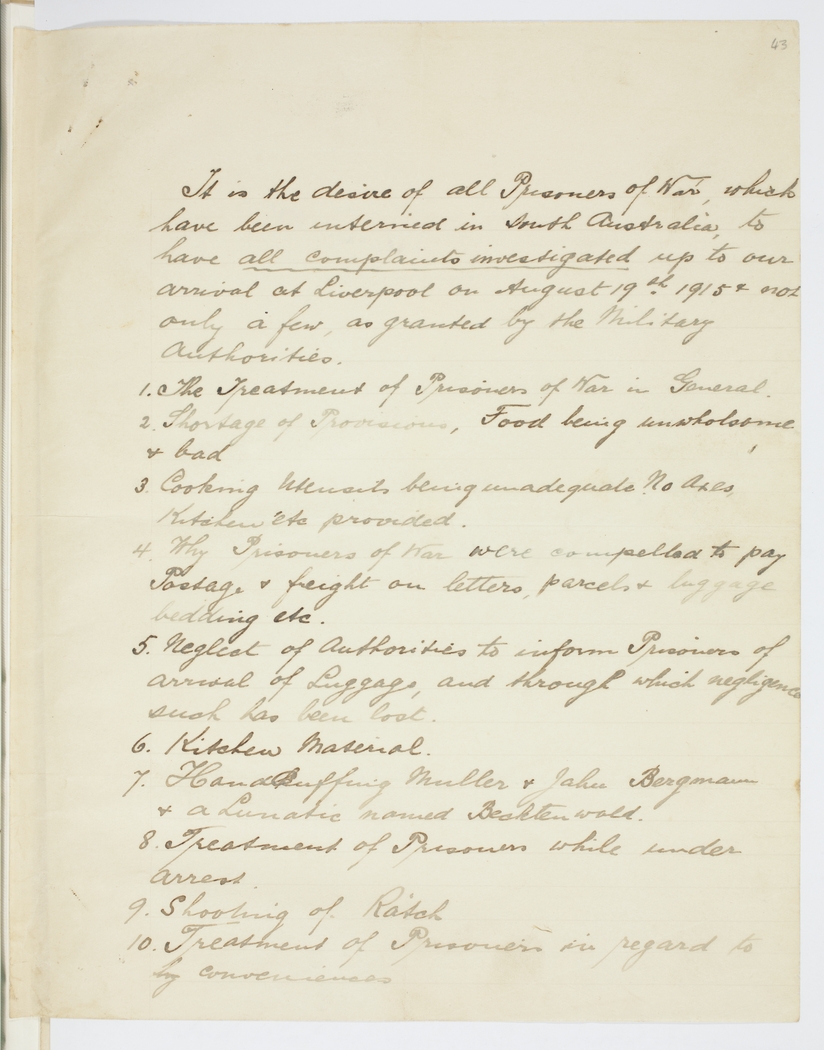 43
It is the desire of all Prisoners of War, which
have been interned in South Australia, to
have all complaints investigated up to our
arrival at Liverpool on August 19th 1915 & not
only a few, as granted by the Military
Authorities.
1. The Treatment of Prisoners of War in General.
2. Shortage of Provisions, Food being unwholsome
& bad
3. Cooking Utensils being unadequate. No Axes,
Kitchen etc provided.
4. Why Prisoners of War were compelled to pay
Postage & freight on letters, parcels & luggage
bedding etc.
5. Neglect of Authorities to inform Prisoners of
arrival of Luggage, and through which negligence
such has been lost.
6. Kitchen Material.
7. Handcuffing Muller & Jahn Bergmann
& a Lunatic named Beckenwald.
8. Treatment of Prisoners while under
arrest.
9. Shooting of Ratsch
10. Treatment of Prisoners in regard to
conveniences